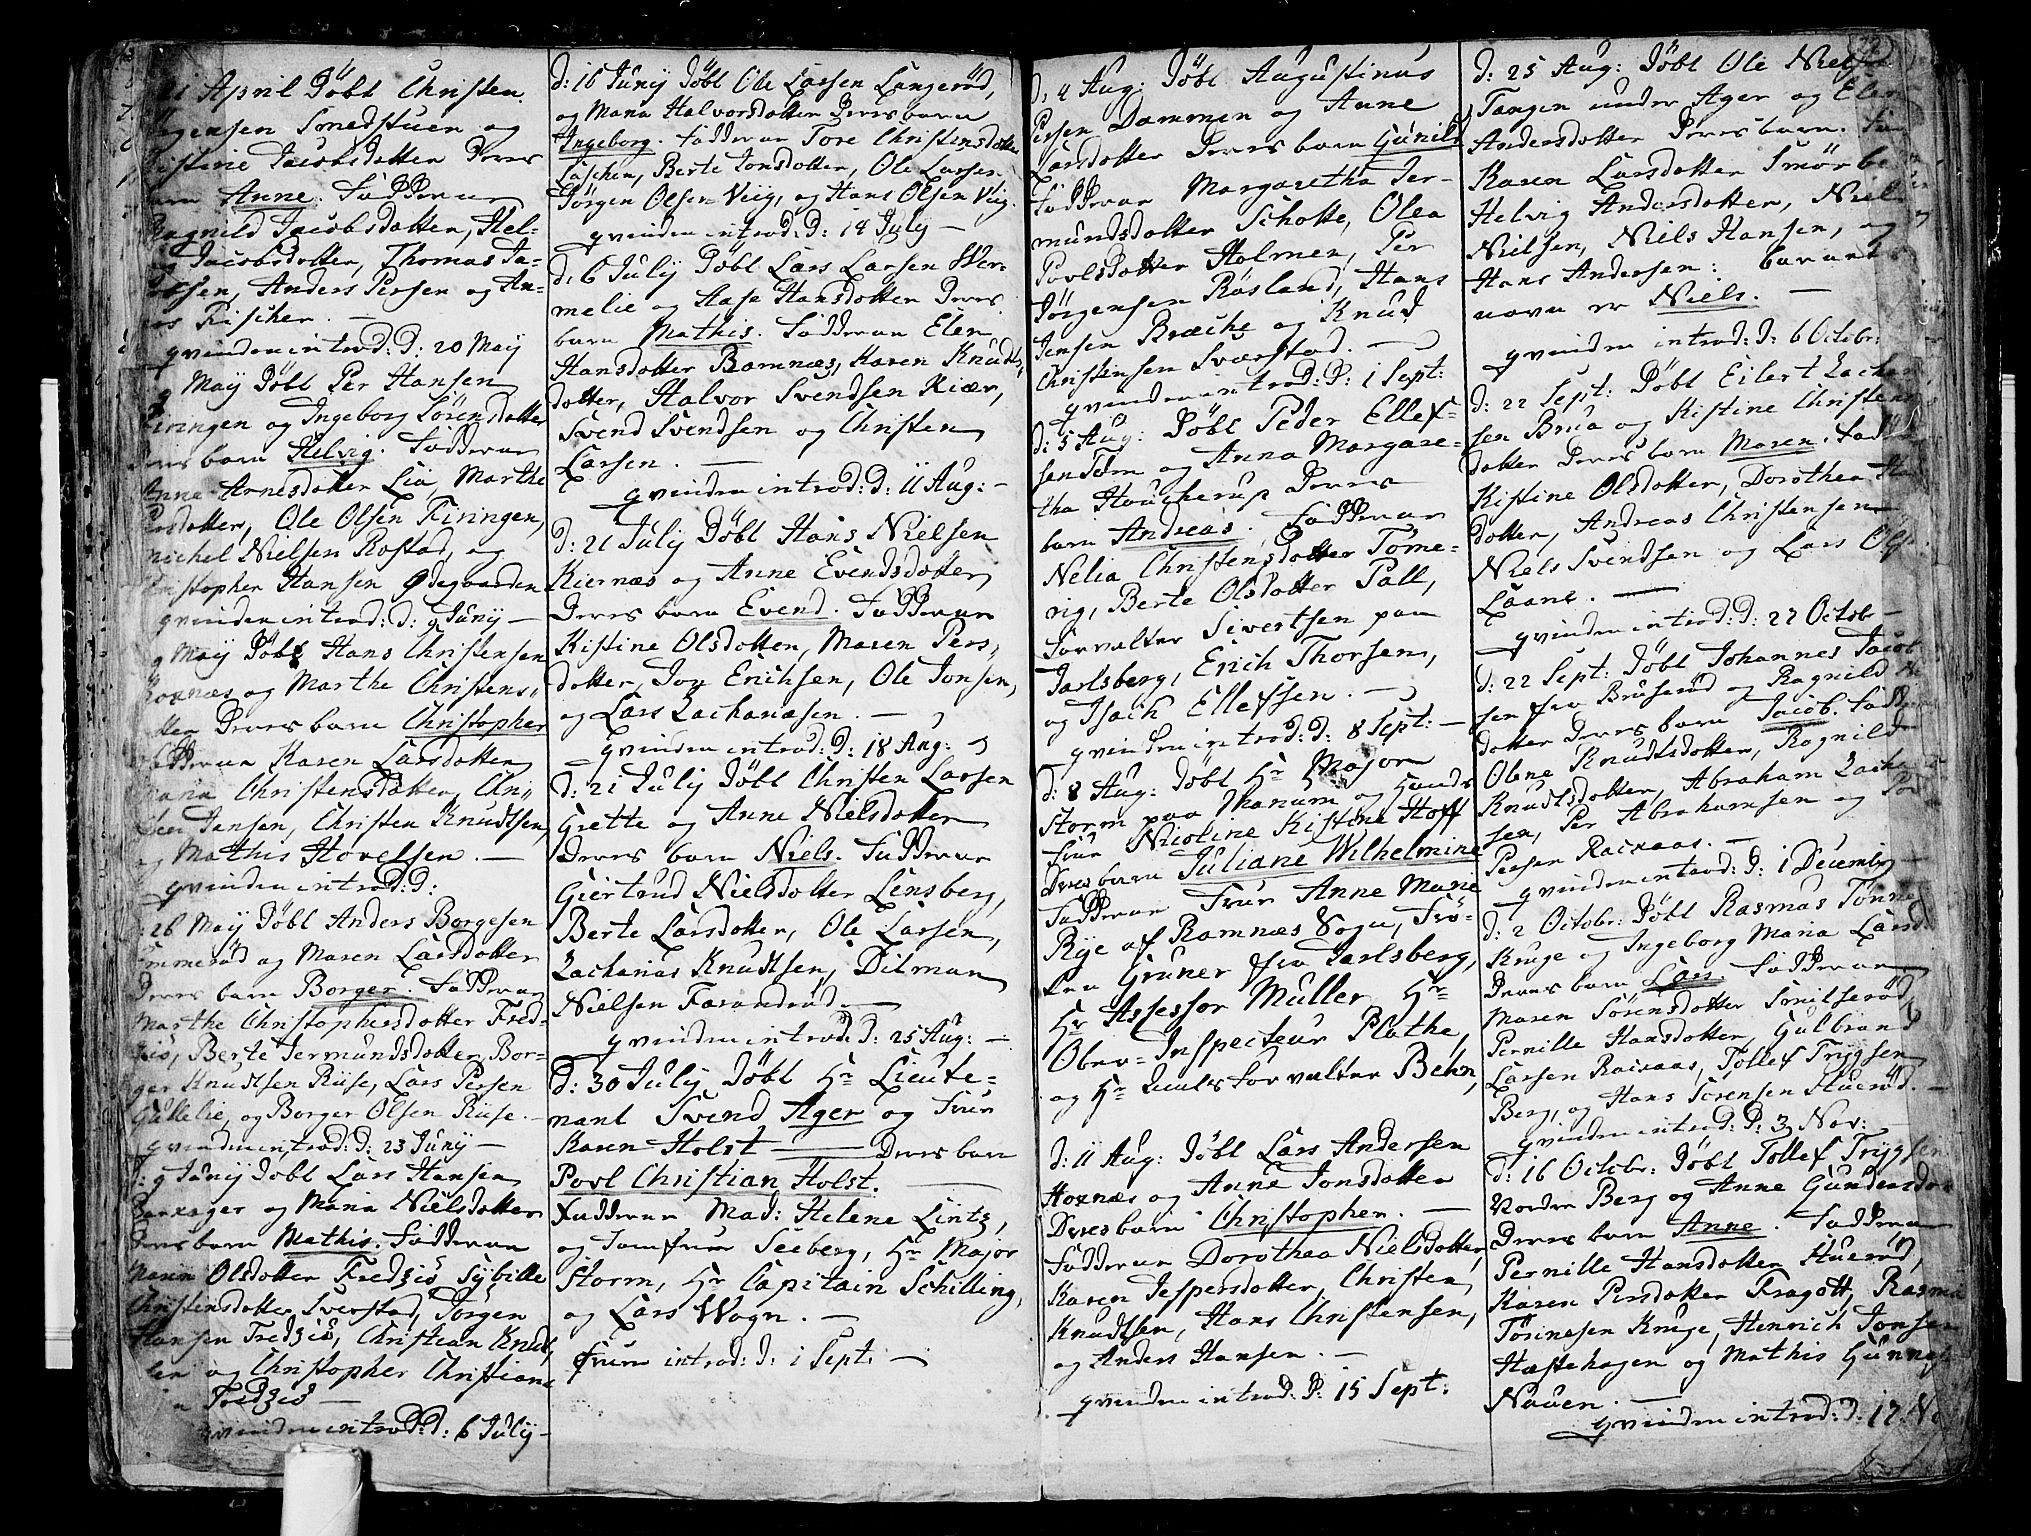 21 April Döbt Christen
Jörgensen Smedstuen og
Kistine Jacobsdotter Deres
barn Anne. Fadderne
Ragnild Jacobsdotter, Hel-
vig Jacobsdotter, Thomas Ja-
cobsen, Anders Persen og An-
ders Fischer. —
qvinden introd: d: 20 May
May Döbt Per Hansen
Firingen og Ingeborg Sörensdotter
Deres barn Helvig. Fadderne
Anne Arnesdotter Lia, Marthe
Persdotter, Ole Olsen Firingen,
Michel Nielsen Rostad, og
Christopher Hansen Ødegaarden
qvinden introd: d: 9 Juny —
May Döbt Hans Christensen
Hoxnæs og Marthe Christens-
dotter Deres barn Christopher
Fadderne Karen Larsdotter
Maria Christensdotter, Chri-
sten Jensen, Christen Knudtsen,
og Mathis Hovelsen. —
qvinden introd: d:
26 May Döbt Anders Borgesen
Lammeröd og Maren Larsdotter
Deres barn Borger. Fadderne
Marthe Christophersdotter Fred-
ziö, Berte Jermundsdotter, Bor-
ger Knudtsen Riise, Lars Persen
Gulelie, og Borger Olsen Riise. —
qvinden introd: d: 23 Juny —
d: 9 Juny Döbt Lars Hansen
Barxager og Maria Nielsdotter
Deres barn Mathis. Fadderne
Maria Olsdotter Fredziö, Sybille
Christensdotter Sverstad, Jörgen
Hansen Fredziö, Christian Knud-
sen og Christopher Christian-
sen Fredziö —
qvinden introd: d: 6 July —
d: 16 Juny Döbt Ole Larsen Langeröd,
og Maria Halvorsdotter Deres barn
Ingeborg. Fadderne Tore Christensdotter
Laschen, Berte Jonsdotter, Ole Larsen
Jörgen Olsen Viig, og Hans Olsen Viig.
qvinden introd: d: 14 July —
d: 6 July Döbt Lars Larsen Wer-
melie og Aase Hansdotter Deres
barn Mathis. Fadderne Elen
Hansdotter Bamnæs, Karen Knudts-
dotter, Halvor Svendsen Kiær,
Svend Svendsen og Christen
Larsen. —
qvinden introd: d: 11 Aug: —
d: 21 July Döbt Hans Nielsen
Kiernæs og Anne Evendsdotter
Deres barn Evend. Fadderne
Kistine Olsdotter, Maren Pers-
dotter, Joy Erichsen, Ole Jonsen,
og Lars Zachariasen. —
qvinden introd: d: 18 Aug:
d: 21 July Döbt Christen Larsen
Grette og Anne Nielsdotter
Deres barn Niels. Fadderne
Giertrud Nielsdotter Linsberg,
Berte Larsdotter, Ole Larsen,
Zacharias Knudtsen, Ditman
Nielsen Farandröd. —
qvinden introd: d: 25 Aug: —
d: 30 July Döbt Hr Lieute-
nant Svend Ager og Frue
Karen Holst — Deres barn
Povl Christian Holst. —
Fadderne Mad: Helene Lintz,
og Jomfrue Seeberg, Hr Major
Storm, Hr Capitain Schilling,
og Lars Wogn. —
Fruen introd: d: 1 Sept: —
d: 4 Aug: Döbt Augustinus
Persen Dammen og Anne
Larsdotter Deres barn Gunild
Fadderne Margaretha Jer-
mundsdotter Schotte, Olea
Povlsdotter Holmen, Per
Jörgensen Rösland, Hans
Jensen Bræche og Knud
Christensen Sværstad. —
qvinden introd: d: 1 Sept:
d: 5 Aug: Döbt Peder Ellef-
sen Tolm og Anna Margare-
tha Houcherup Deres
barn Andreas. Fadderne
Nelia Christensdotter Tome-
rig, Berte Olsdotter Pall,
Forvalter Sivertsen paa
Jarlsberg, Erich Thorsen,
og Isach Ellefssen. —
qvinden introd: d: 8 Sept: —
d: 8 Aug: Döbt Hr Major
Storm paa Skanum og Hands
Frue Nicoline Kistine Hoff
Deres barn Juliane Wilhelmine
Fadderne Frue Anne Marie
Rye af Ramnæs Sogn, Frö-
ken Grüner fra Jarlsberg,
Hr Assessor Müller, Hr
Ober-Inspecteur Plathe,
og Hr Forvalter Behn,
d: 11 Aug: Döbt Lars Andersen
Hoxnæs og Anne Jonsdotter
Deres barn Christopher. —
Fadderne Dorothea Nielsdotter,
Karen Jespersdotter, Christen
Knudtsen, Hans Christensen,
og Anders Hansen. —
qvinden introd: d: 15 Sept:
d: 25 Aug: Döbt Ole Nielsen
Tangen under Ager og Elen
Andersdotter Deres barn. Fad
Karen Larsdotter Smörbe
Helvig Andersdotter, Niels
Nielsen, Niels Hansen, og
Hans Andersen: barnets
navn er Niels. —
qvinden introd: d: 6 Octobr:
d: 22 Sept: Döbt Eilert Zachari
sen Brua og Kistine Christens
dotter Deres barn Maren. Fadd
Kistine Olsdotter, Dorothea Ha
dotter, Andreas Christensen
Niels Svendsen og Lars Olse
Laane. —
qvinden introd: d: 22 Octob —
d: 22 Sept: Döbt Johannes Jacob
sen fra Bruseröd og Ragnild Ni
dotter Deres barn Jacob. Fadd
Olene Knudtsdotter, Ragnild
Knudtsdotter, Abraham Zacha
sen, Per Abrahamsen og Po
Persen Racxaas. —
qvinden introd: d: 1 Decemb —
d: 2 October: Döbt Rasmus Tönne
Kruge og Ingeborg Maria Larsd
Deres barn Lars. Fadderne
Maren Sörensdotter Smitseröd,
Pernille Hansdotter, Gulbrand
Larsen Racxaas, Tollef Trygsen
Berg, og Hans Sörensen Stueröd. —
qvinden introd: d: 3 Nov: —
d: 16 Octobr: Döbt Tollef Trygsen
Nordre Berg og Anne Gundersdo
Deres barn Anne. Fadderne
Pernille Hansdotter Stueröd,
Karen Persdotter Fragött, Rasmu
Törinesen Kruge, Henrich Jonsen
Hæstehagen og Mathis Gunners
Nauen. —
qvinden introd: d: 17 No